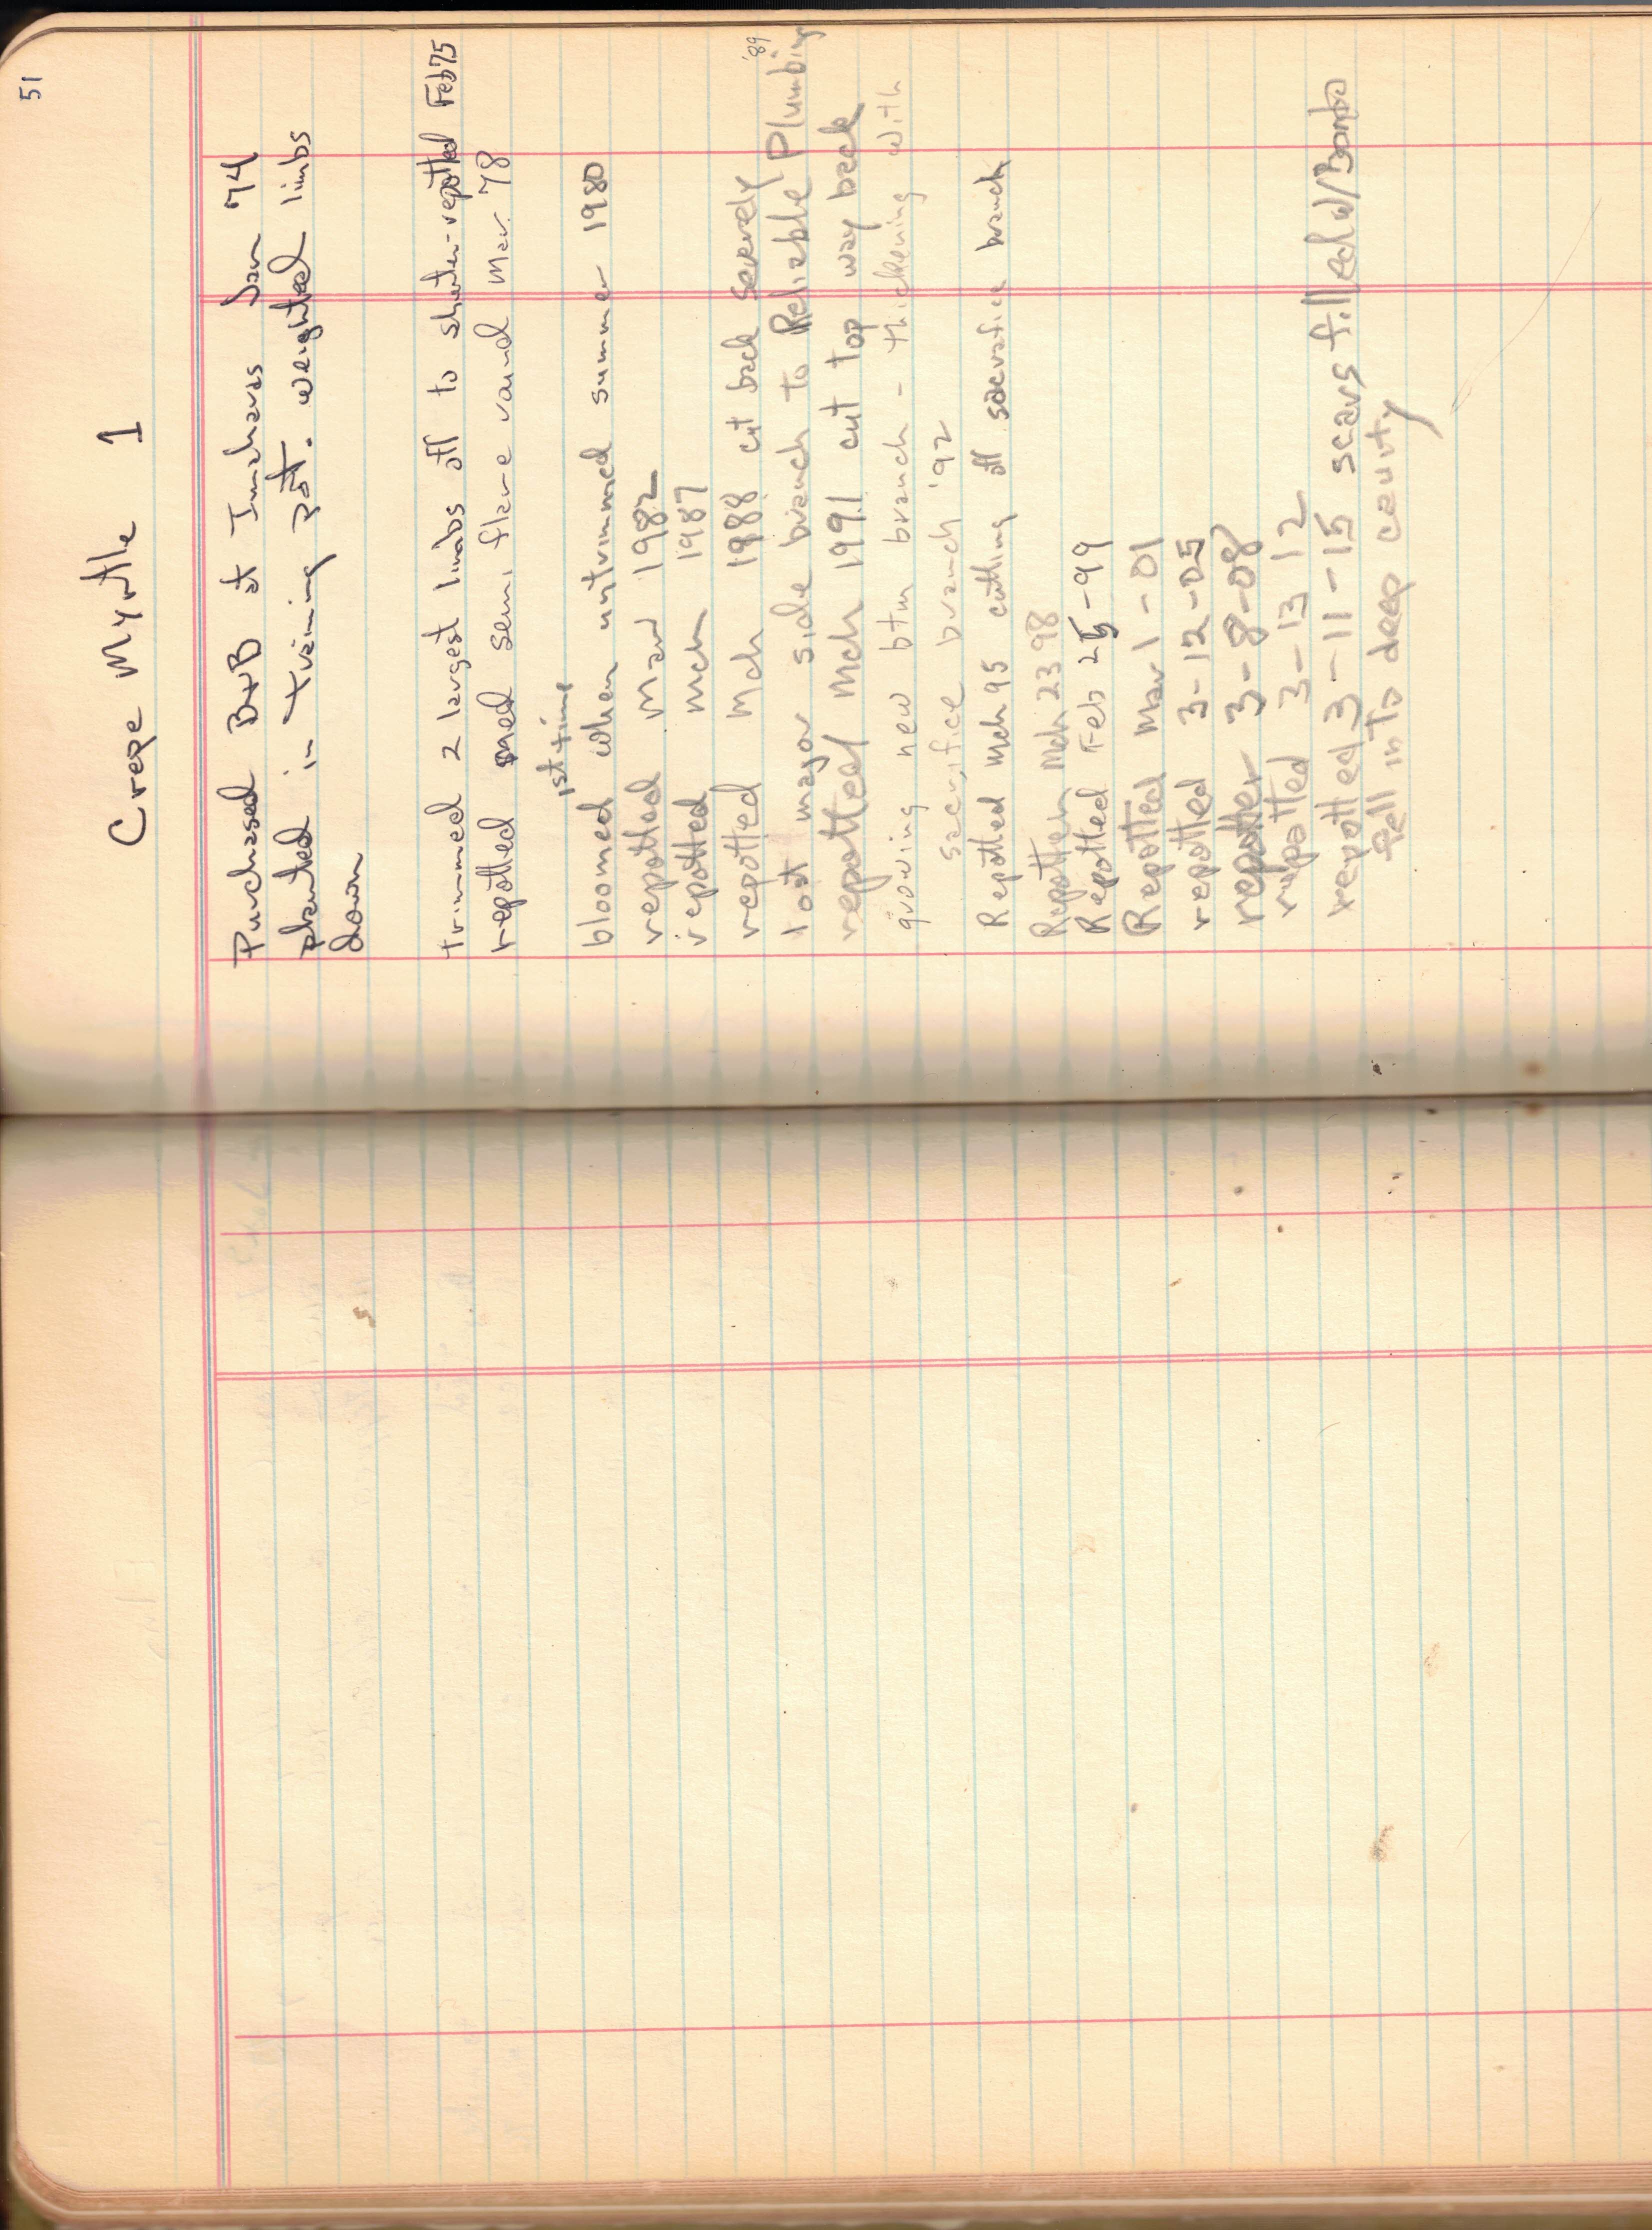 51
Crepe Myrtle 1
Purchased B+B at Imaharas Jan 74
planted in training pot. weighted limbs
down
trimmed 2 largest limbs off to shorten-repotted Feb75
repotted med semi flare round Mar. 78
1st time
bloomed when untrimmed summer 1980
repotted Mar 1982
repotted mch 1987
repotted Mch 1988 cut back severely
'89
lost major side branch to Reliable Plumbing
repotted Mch 1991 cut top way back
growing new btm branch - thickening with
sacrifice branch '92
Repotted Mch 95 cutting off sacrafice branch
Repotten Mch 23 98
Repotted Feb 25-99
Repotted Mar 1 - 01
repotted 3-12-05
repotter 3-8-08
repotted 3-13 12
repotted 3-11-15 scars filled w/Bondo
fell into deep cavity